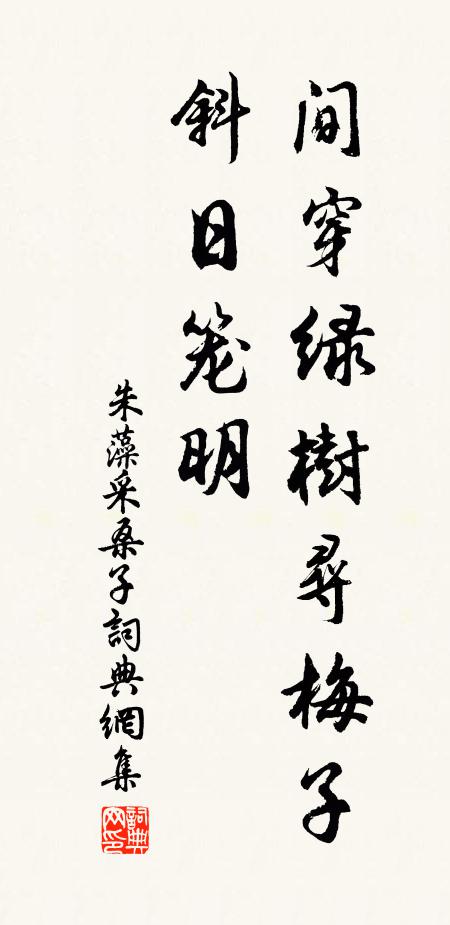 间穿绿樹尋梅子
斜日笼明
朱藻采桑子詞典網集
詞典网印